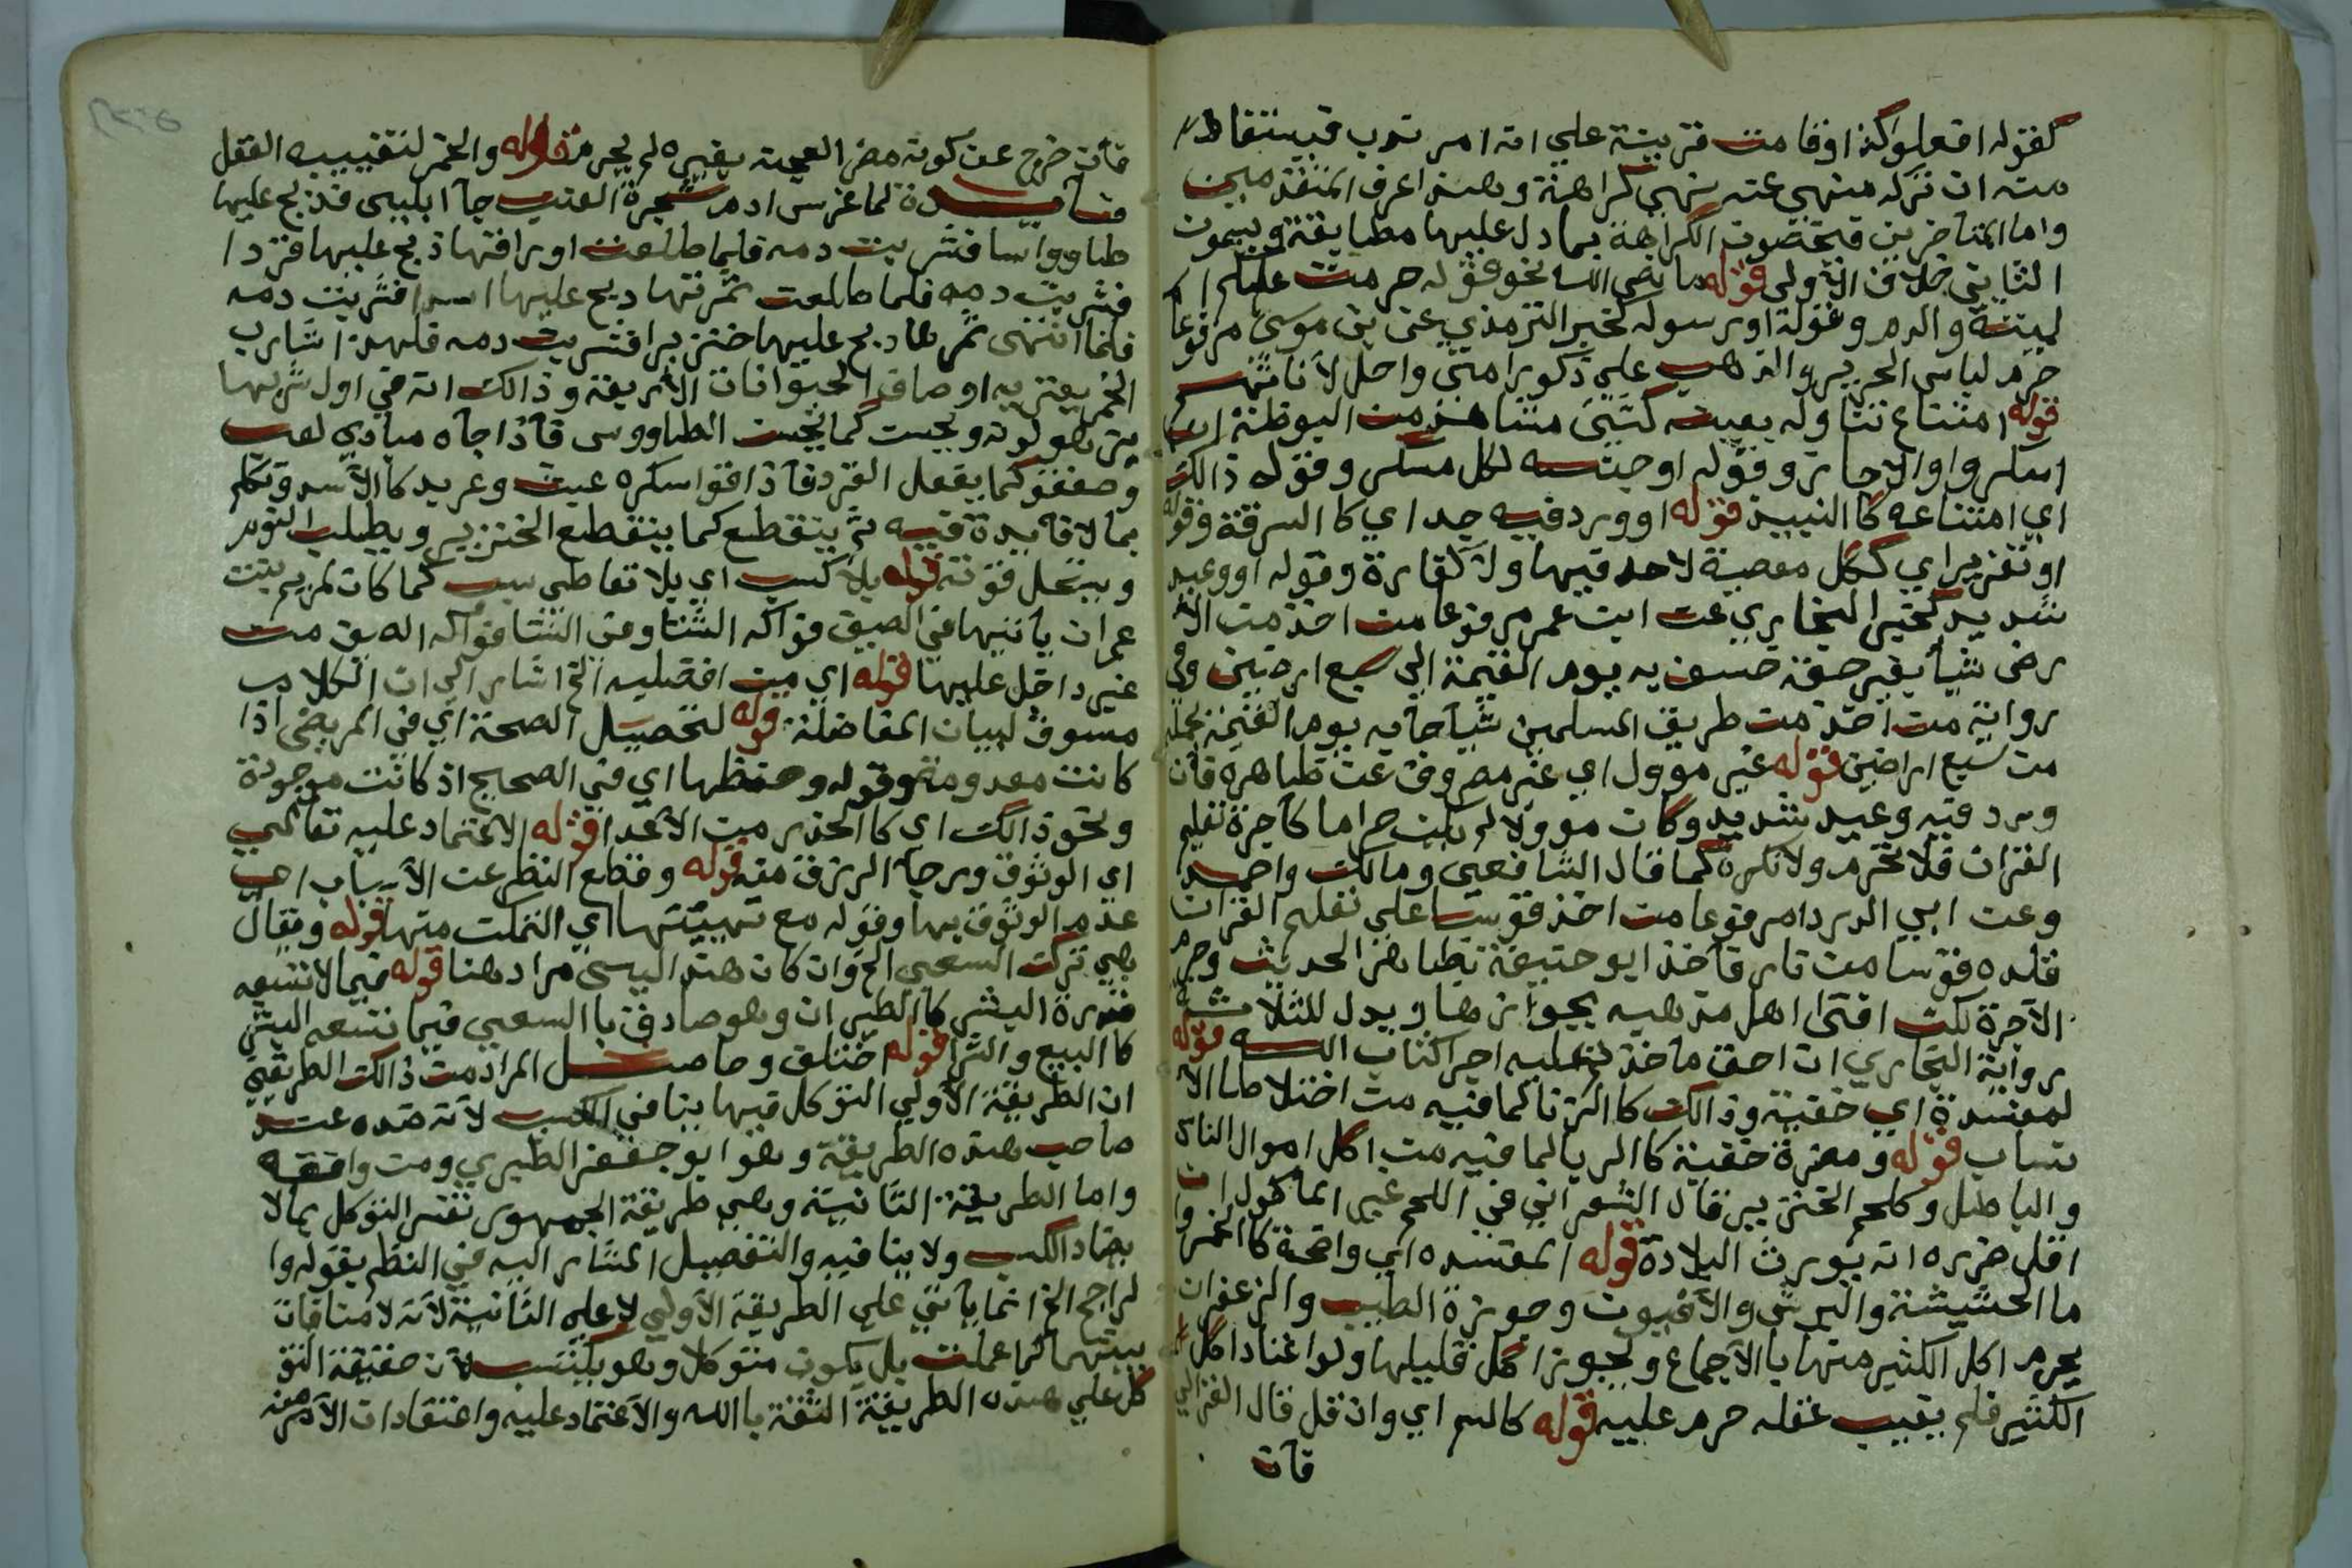 كقوله افعلوا كذا وقامت قرينة علي انه امر ندب فيستفاد
منه ان تركه منهي عنه نهي كراهة وهذا عرف المتقدمين
واما المتاخرين فيخصون الكراهة بما دل عليها مطابقة ويسمون
الثاني خلاف الاولي قوله ما نص الله نحو قوله حرمت عليكم ا
لميتة والدم وقوله او رسوله كخبر الترمذي عن بن موسي مرفوعا
حرم لباس الحرير والذهب علي ذكور امتي واحل لاناثهم
قوله امتناع تناوله بعينه كشي
المكر واو الاجاز وقوله او جنسه لكل مسكر وقوله ذالك
اي امتناعه كا النبيذ قوله او ورد فيه حد اي كا السرقة وقوله
او تعزير اي ككل معصية لاحد فيها ولا كفارة وقوله او وعيد
شديد كخبر البخاري عن ابن عمر مرفوعا من اخذ من الا
رض شيا بغير حقه خسف به يوم القيمة الي سبع ارضين وفي
رواية من اخذ من طريق المسلمين شيا جا به يوم القيمة يحمله
من سبع اراضين قوله غير موول اي غير مصروف عن ظاهره فان
ورد فيه وعيد شديد وكان موولا لم يكن حراما كاجرة تعليم
القران فلا تحرم ولا تكره كما قال الشافعي ومالك واحمد
وعن ابي الدردا مرفوعا من اخذ قوسا علي تعليم القران
قلده قوسا من نار فاخذ ابو حنيفة بظاهر الحديث وحرم
الاجرة لكن افتي اهل مذهبه بجوازها ويدل للثلاثة
رواية البخاري ان احق ما خذتم عليه اجر اكتاب الله قوله
لمفسدة اي خفية وذالك كا الزنا لما فيه من اختلاط الا
نساب قوله ومضرة خفية كا الربا لما فيه من اكل اموال الناس
والباطل وكلحم الخنزير قال الشعراني في اللحم غير الماكول ان
اقل ضرره انه يورث البلادة قوله المفسده اي واضحة كا الخمر وا
ما الحشيشة والبرش والافيون وجوزة الطيب والزعفران
يحرم اكل الكثير منها با الاجماع ويجوز اكل قليلها ولو اعتاد اكل
الكثير فلم يغيب عقله حرم عليه قوله كالسم اي وان قل قال الغزالي
فان
فان خرج عن كونه مضرا لعجنه بغيره لم يحرم قوله والخمر لتغييبه العقل
فائدة لما غرس ادم شجرة العنب جا ابليس فذبح عليها
طاووسا فشربت دمه فلما طلعت اوراقها ذبح عليها قردا
فشربت دمه فلما طلعت ثمرتها ذبح عليها اسدا فشربت دمه
فلما انتهي ثمرها ذبح عليها خنزيرا فشربت دمه فلهذا شارب
الخمر يعتريه اوصاف الحيوانات الاربعة وذالك انه في اول شربها
كما الطاووس فاذا جاه مبادي لعب
وصفق كما يفعل القرد فاذا قوا سكره عبث وعربد كا الاسد وتكلم
بما لا فايدة فيه ثم ينقطع كما ينقطع الخنزير ويطلب النوم
وينحل قوته قوله بلا كسب اي بلا تعاطي سبب كما كان لمريم بنت
عمران ياتيها في الصيف فواكه الشتا وفي الشتا فواكه الصيف من
غير داخل عليها قوله اي من افضليه الخ اشار الي ان الكلام
مسوق لبيان المفاضلة قوله لتحصيل الصحة اي في المريض اذا
كانت معدومة وقوله وحفظها اي في الصحيح اذ كانت موجودة
ونحو ذالك اي كا الحذر من الاعدا قوله الاعتماد عليه تعالي
اي الوثوق ورجا الرزق منه قوله وقطع النظر عن الاسباب اي
عدم الوثوق بها وقوله مع تهيئتها اي التمكن منها قوله ويقال
هي ترك السعي الخ وان كان هذا ليس مراد هنا قوله فيما لا تسعه
قدرة البشر كا الطيران وهو صادق با السعي فيما تسعه البشر
كا البيع والشرا قوله اختلف وحاصل المراد من ذالك الطريقين
ان الطريقة الاولي التوكل فيها ينافي الكسب لانه ضده عند
صاحب هذه الطريقة وهو ابو جعفر الطبري ومن وافقه
واما الطريقة الثانية وهي طريقة الجمهور تفسر التوكل بما لا
يضاد الكسب ولا ينافيه والتفصيل المشار اليه في النظم بقوله وا
لراجح الخ انما ياتي علي الطريقة الاولي لا علي الثانية لانه لا منافات
بينهما كما علمت بل يكون متوكلا وهو يكتسب لان حقيقة التو
كل علي هذه الطريقة الثقة با الله والاعتماد عليه واعتقادات الامر منه